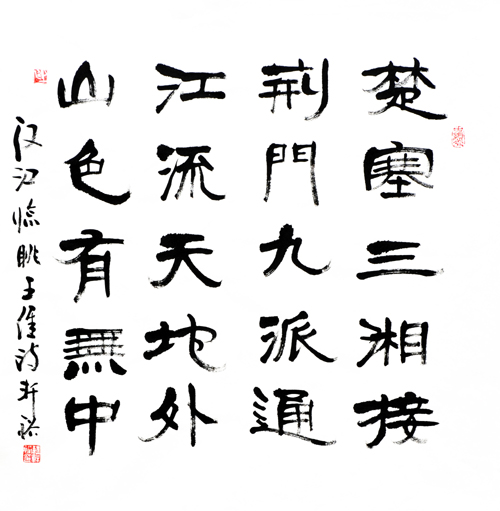 楚塞三湘接
荆門九派通
江流天地外
山色有無中
汉江临眺王维诗